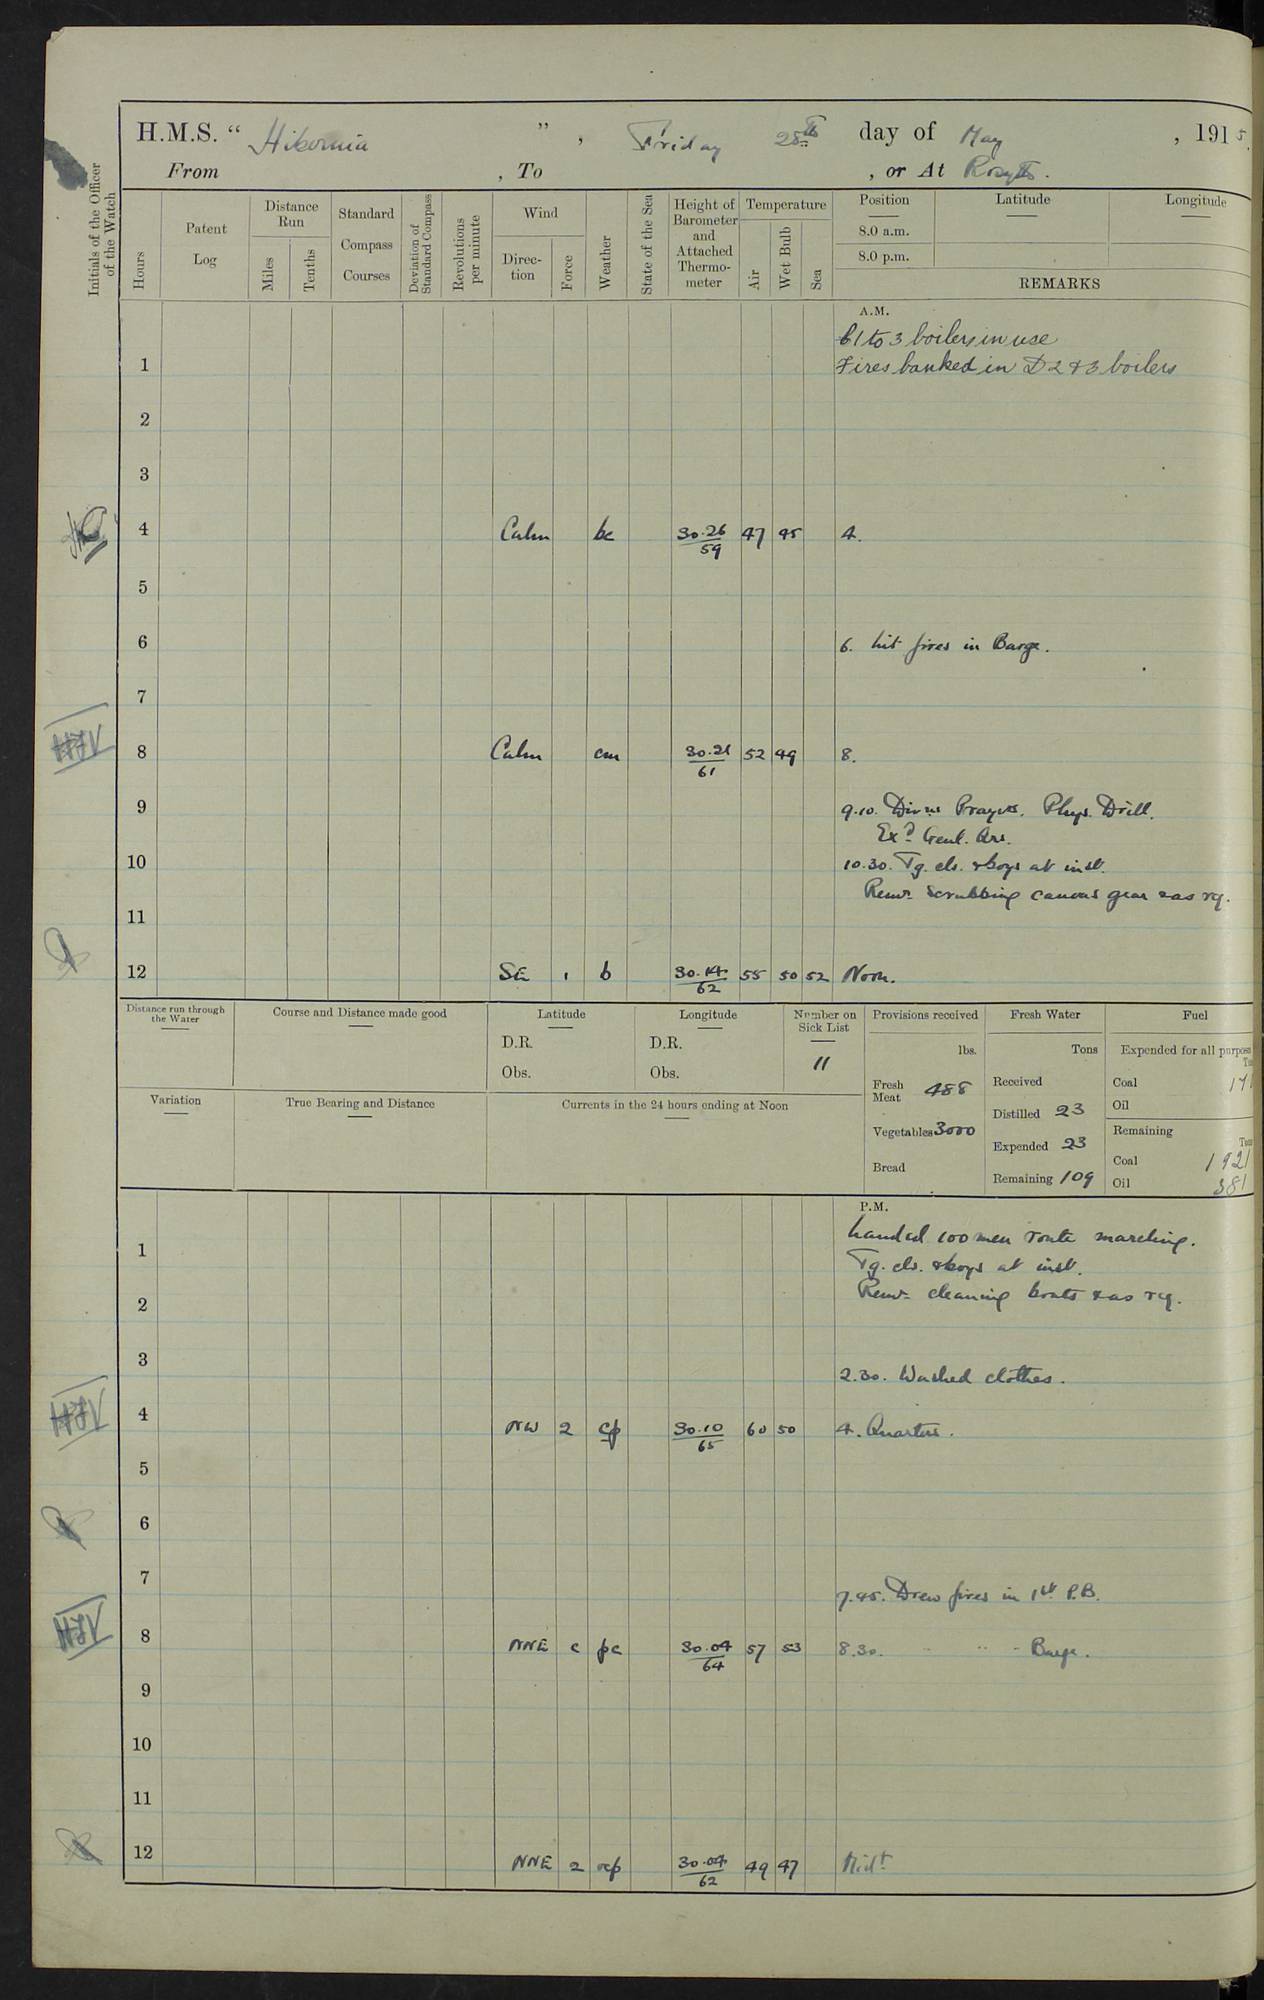 H.M.S. " Hibernia ", Friday 28th day of May, 1915.
From , To , or At Rosyth.
Initials of the Officer of the Watch
Hours
Patent Log
Distance Run
Miles
Tenths
Standard Compass Courses
Deviation of Standard Compass
Revolutions per minute
Wind
Direction
Force
Weather
State of the Sea
Height of Barometer and Attached Thermometer
Temperature
Air
Wet Bulb
Sea
Position
Latitude
Longitude
8.0 a.m.
8.0 p.m.
REMARKS
A.M.
1 to 3 boilers in use
1 Fires banked in D 2 & 3 boilers
2
3
4 Calm bc 30.26/59 47 45 4.
5
6 6. Lit fires in Barge.
7
8 Calm cm 30.21/61 52 49 8.
9 9.10. Divns Prayers. Phys. Drill.
Exd. Genl. Qrs.
10 10.30. Tg. cls. & boys at inst.
Remr. Scrubbing canvas gear & as rq.
11
12 SE 1 b 30.14/62 55 50 52 Noon.
Distance run through the Water
Course and Distance made good
Latitude
D.R.
Obs.
Longitude
D.R.
Obs.
Number on Sick List
11
Provisions received
lbs.
Fresh Meat 488
Vegetables 3000
Bread
Fresh Water
Tons
Received
Distilled 23
Expended 23
Remaining 109
Fuel
Expended for all purposes
Coal
Oil
Remaining
Coal 1921
Oil 381
Variation
True Bearing and Distance
Currents in the 24 hours ending at Noon
P.M.
Landed 100 men route marching.
1 Tg. cls. & boys at inst.
2 Remr. cleaning boats & as rq.
3 2.30. Washed clothes.
4 NW 2 cp 30.10/65 60 50 4. Quarters.
5
6
7 7.45. Drew fires in 1st P.B.
8 NNE 2 pc 30.04/64 57 53 8.30. " " " Barge.
9
10
11
12 NNE 2 ocp 30.04/62 49 47 Midt